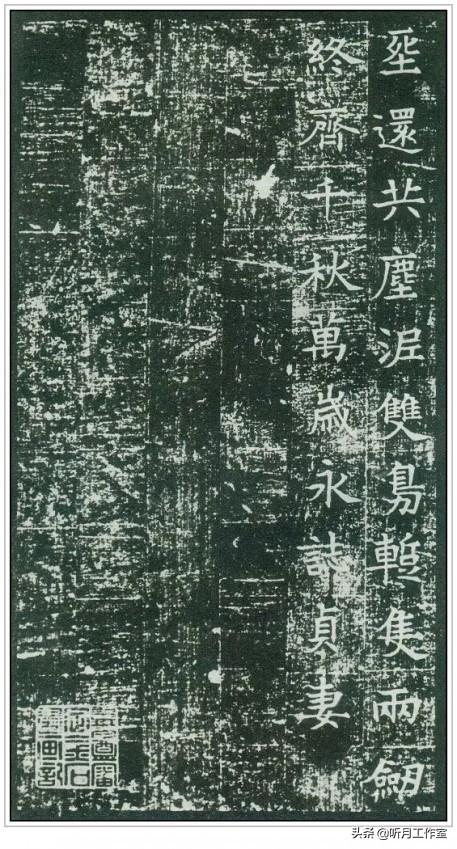 還共塵泥雙鳬暫隻兩劒
終齊千秋萬歲永誌貞妻
头条 @听月工作室